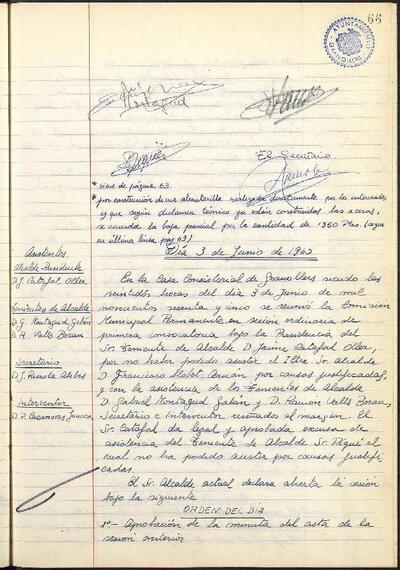 66
AYUNTAMIENTO
GRANOLLERS
Montagud
El Secretario
* viene de página 63.
* por construcción de una alcantarilla realizada directamente por los interesados
y que según dictamen técnico ya están construidas las aceras,
se acuerda la baja parcial por la cantidad de 1360 Ptas. (sigue
en última línea pag 63)
Día 3 de Junio de 1965
Asistentes
Alcalde-Presidente
D. J. Catafal Oller
Tenientes de Alcalde
D. G. Montagud Galán
D. R. Valls Borau
Secretario
D. J.
Interventor
D. P. Casanovas
En la Casa Consistorial de Granollers siendo las
veintidós horas del día 3 de Junio de mil
novecientos sesenta y cinco se reunió la Comisión
Municipal Permanente en sesión ordinaria de
primera convocatoria bajo la Presidencia del
Sr. Teniente de Alcalde D. Jaime Catafal Oller,
por no haber podido asistir el Iltre. Sr. Alcalde
D. Francisco Llobet Arnán por causas justificadas,
y con la asistencia de los Tenientes de Alcalde
D. Gabriel Montagud Galán y D. Ramón Valls Borau,
Secretario e Interventor reseñados al margen. El
Sr. Catafal da legal y aprobada excusa de
asistencia del Teniente de Alcalde Sr. Piqué el
cual no ha podido asistir por causas justifi-
cadas.
El Sr. Alcalde actual declara abierta la sesión
bajo la siguiente
ORDEN DEL DIA
1º- Aprobación de la minuta del acta de la
sesión anterior